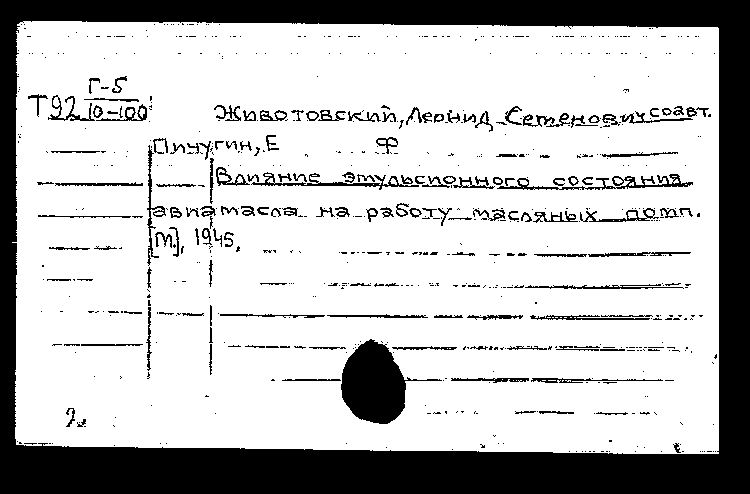 Г-5
Т92 10-100
Животовский, Леонид Семенович соавт.
Пичугин, Е Ф
Влияние эмульсионного состояния
авиамасла на работу масляных помп.
[М], 1945.